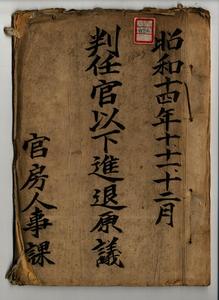 昭和十四年十、十一、十二月
判任官以下進退原議
官房人事課